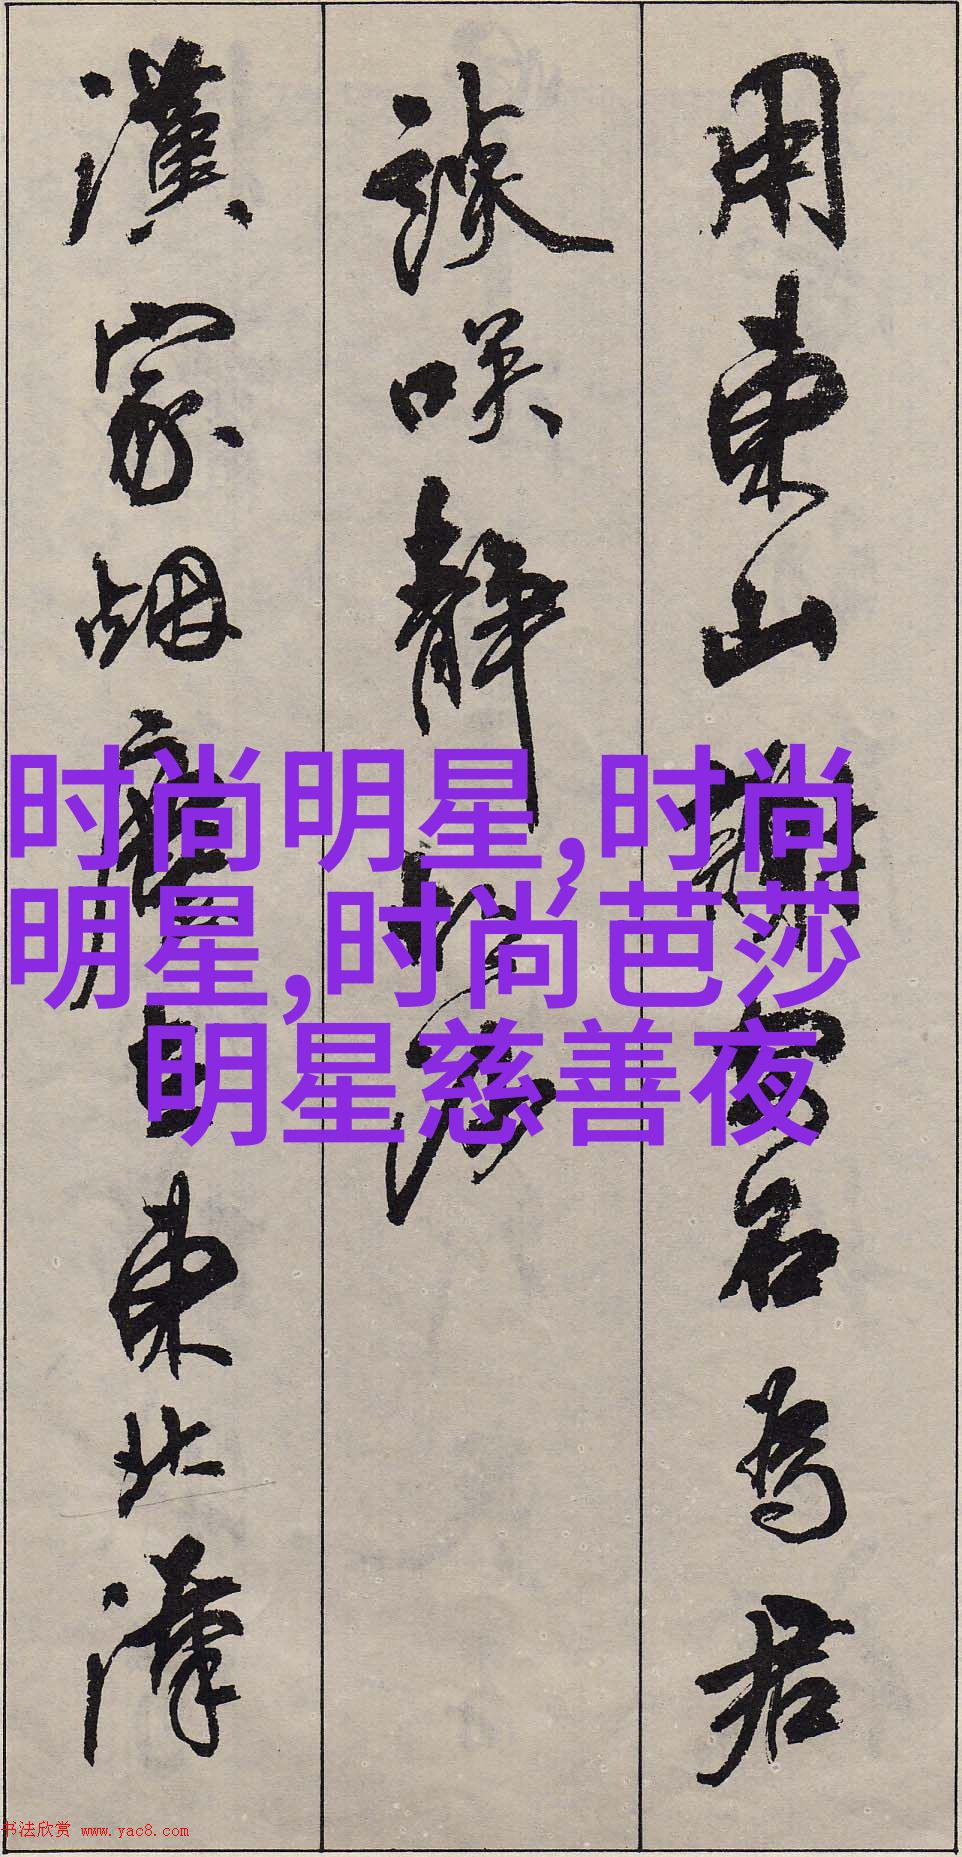 用東山謝安石為君
談笑静胡沙
漢家烟塵在東北漢
时尚明星,时尚
明星,时尚芭莎
明星慈善夜
书法欣赏 www.yac8.com